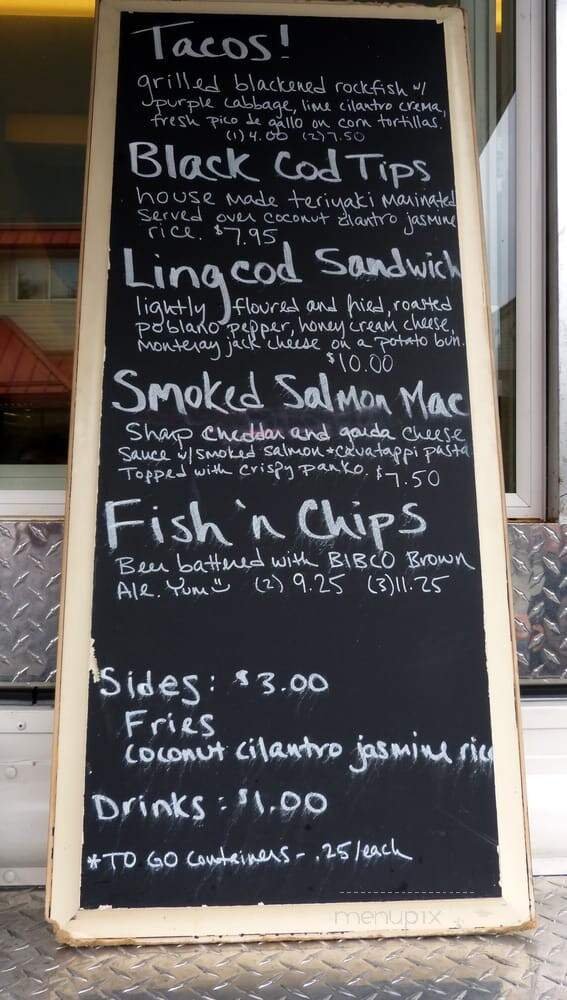 Tacos!
grilled blackened rockfish w/
purple cabbage, lime cilantro crema,
fresh pico de gallo on corn tortillas.
(1) 4.00 (2) 7.50
Black Cod Tips
house made teriyaki marinated
served over coconut cilantro jasmine
rice. $7.95
Lingcod Sandwich
lightly floured and fried, roasted
poblano pepper, honey cream cheese,
Monteray jack cheese on a potato bun.
$10.00
Smoked Salmon Mac
Sharp cheddar and gouda cheese
sauce w/ smoked salmon + cavatappi pasta
Topped with crispy panko. $7.50
Fish 'n Chips
Beer battered with BIBCO Brown
Ale. Yum (2) 9.25 (3) 11.25
Sides: $3.00
Fries
coconut cilantro jasmine rice
Drinks: $1.00
*TO GO containers - .25/each
menupix